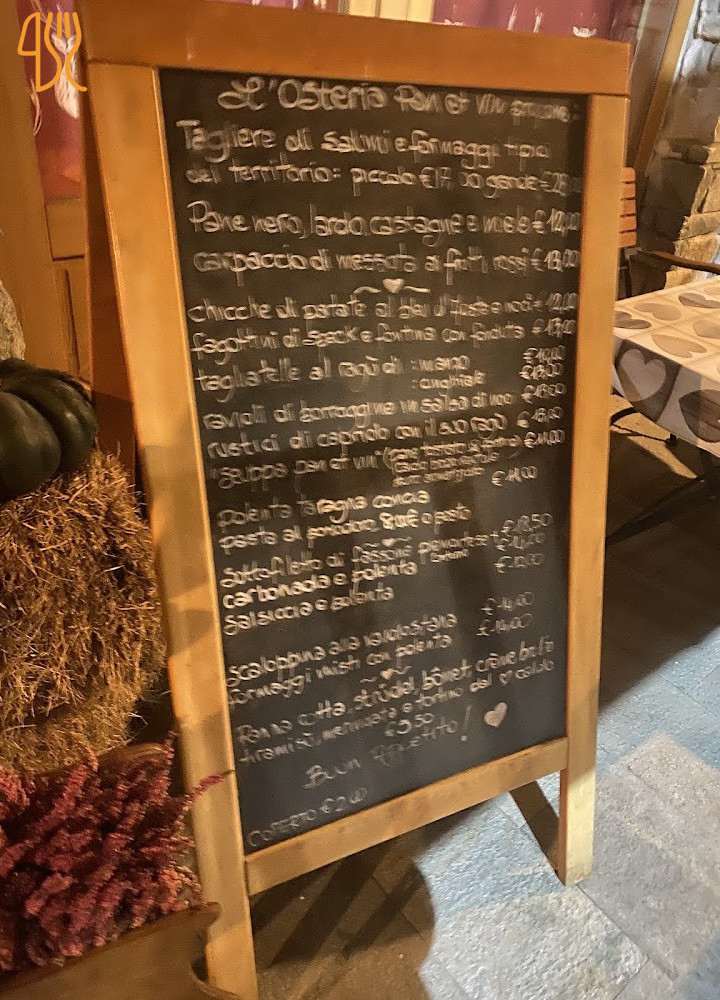 L'Osteria Pan et vin propone:
Tagliere di salumi e formaggi tipici
del territorio: piccolo €17,00 grande €
Pane nero, lardo, castagne e miele €12,00
carpaccio di ai frutti rossi €13,00
chicche di patate al bleu d'Aoste e noci €12,00
fagottini di speck e fontina con fonduta €13,00
tagliatelle al ragù di : manzo €10,00
: cinghiale €13,00
ravioli di borragine in salsa di noci €13,00
rustici di capriolo con il suo ragù €13,00
"Seuppa pan et vin" €11,00
polenta taragna concia €11,00
pasta al pomodoro, o pesto
Sottofiletto di fassone piemontese €18,50
carbonada e polenta
Salsiccia e polenta €12,00
scaloppina alla valdostana €14,00
formaggi misti con polenta €14,00
Panna cotta, strüdel, bônet, crème brulè
tiramisù, meringata e tortino dal ♡ caldo
€5,50
Buon Appetito!
COPERTO €2,00